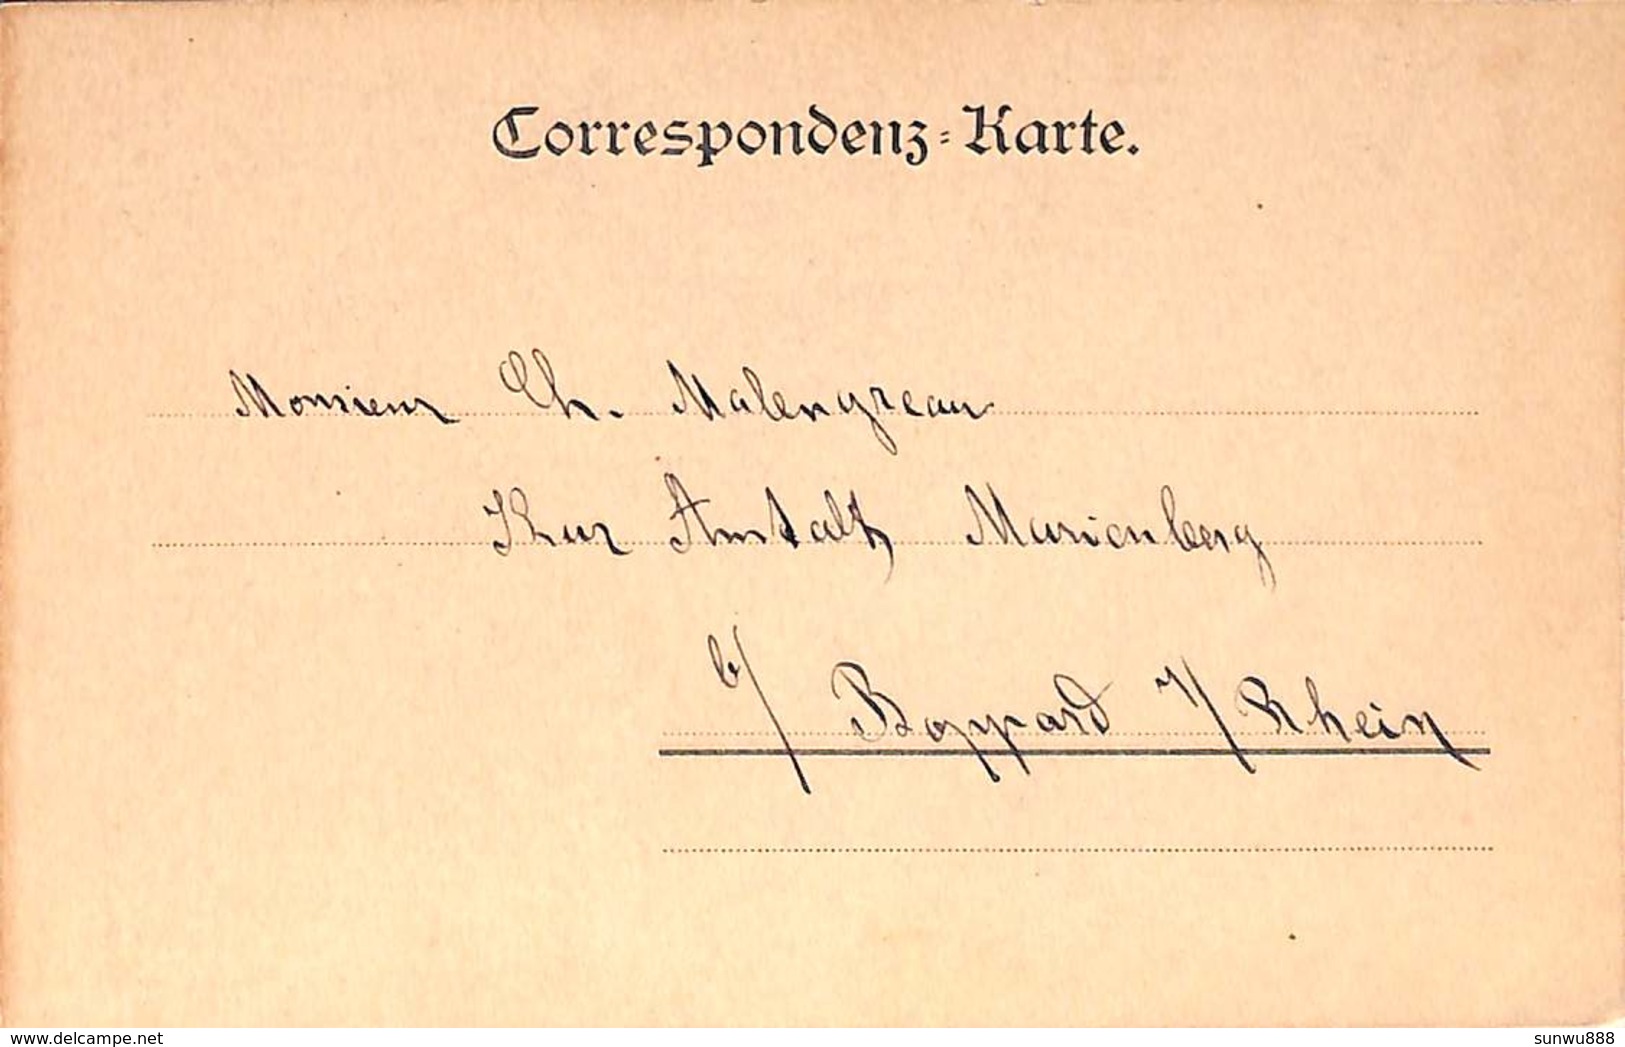 Correspondenz-Karte.
Monsieur Ch. Malengreau
Kur Anstalt Marienberg
b/ Boppard a/ Rhein
www.delcampe.net
sunwu888